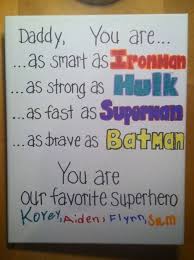 Daddy, You are...
...as smart as IRONMAN
...as strong as Hulk
...as fast as Superman
...as brave as BATMAN
You are
our favorite superhero
Korey, Aiden, Flynn, Sam